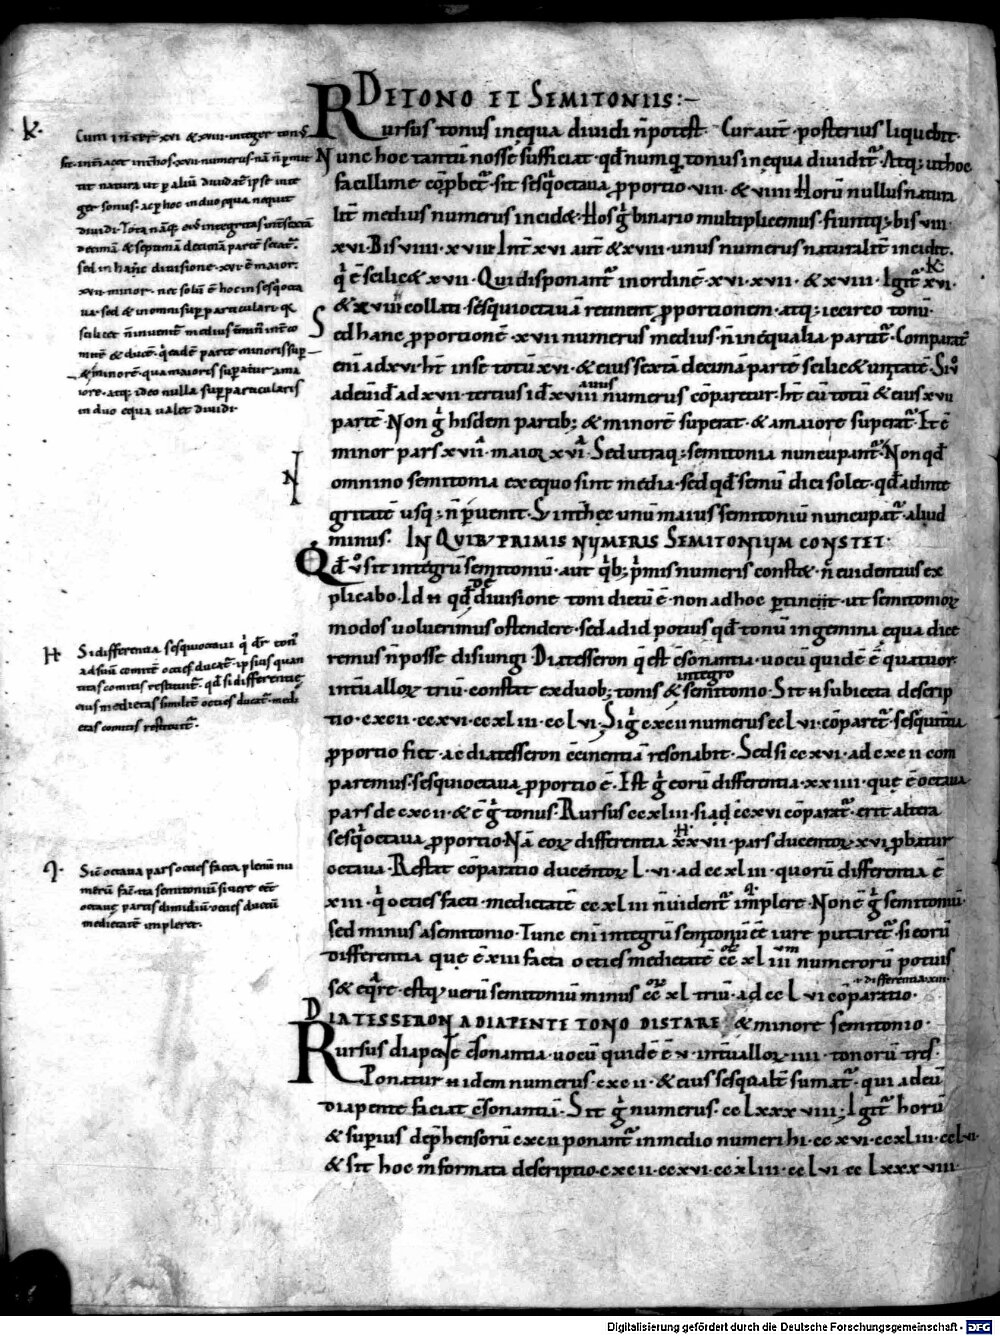 DE TONO ET SEMITONIIS:–
Rursus tonus in ęqua diuidi n̄ potest · Cur aut̄ · posterius liquebit ·
Nunc hoc tantū nosse sufficiat · qđ numq̨ tonus in ęqua diuidit᷑ · Atq; ut hoc
facillime cōpbet᷑ · sit sesq̇octaua ꝓportio · viii · & viiii · Horū nullus natura
lit̄ medius numerus incidet · Hos g̊ binario multiplicemus · fiuntq; bis viii ·
xvi · Bis viiii · xviii · Int̄ xvi aut̄ & xviii · unus numerus naturalit̄ incidit ·
q̇ ē scilic& xvii · Qui disponant᷑ in ordinē · xvi · xvii · & xviii · Igit᷑ xvi ·
& xviii collati · sesquioctauā retinent ꝓportionem · atq; iccirco tonū ·
Sed hanc ꝓportionē · xvii numerus medius · n̄ in ęqualia partit᷑ · Comparat᷑
eni ad xvi · ht̄ in se totū xvi · & eius sextā decimā partē scilic& unitatē · Si ů
ad eūđ ad xvii · tertius iđ xviii numerus cōparetur · ht̄ eū totū & eius xvii
partē · Non g̊ hisdem partib; & minorē superat · & a maiore superat᷑ · & ē
minor pars xvii · maior xvi · Sed utraq; semitonia nuncupant᷑ · Non qđ
omnino semitonia ex ęquo sint media · sed qđ semū dici solet · qđ ad inte
gritatē usq; n̄ puenit · S; int̄ hęc unū maius semitoniū nuncupat᷑ · aliud
minus · IN QUIB; PRIMIS NUMERIS SEMITONIUM CONSTET ·
Qđ ů sit integrū semitoniū · aut q̇b; p̊mis numeris constet · n̄ euidentius ex
plicabo · Id n̄ qđ de diuisione toni dictū ē · non ad hoc ptinent · ut semitonior̄
modos uoluerimus ostendere · sed ad id potius qđ tonū in gemina ęqua dice
remus n̄ posse disiungi · Diatesseron q̨ est c̄sonantia · uocū quidē ē quatuor
int̄uallor̄ triū · constat ex duob; tonis & integro semitonio · Sit n̄ subiecta descrip
tio · cxcii · ccxvi · ccxliii · cclvi · Si g̊ cxcii numerus cclvi cōparet᷑ · sesquit̄tia
ꝓportio fiet · ac diatesseron c̄cinentiā resonabit · Sed si ccxvi · ad cxcii com
paremus · sesquioctaua ꝓportio ē · Est g̊ eorū differentia · xxiiii · quę ē octaua
pars de cxcii · & ē g̊ tonus · Rursus ccxliii · si ad ccxvi cōparat᷑ · erit altera
sesq̇octaua ꝓportio · Nā eor̄ differentia xxvii · pars ducentor̄ xvi pbatur
octaua · Restat cōparatio ducentor̄ L · vi · ad ccxliii · quorū differentia ē
xiii · q̇ octies facti · medietatē ccxliii n̄ uident᷑ implere · Non ē g̊ semitoniū ·
sed minus a semitonio · Tunc eni integrū semitoniū eē iure putaret᷑ · si eorū
differentia quę ē xiii facta octies medietatē ccxliiium numerorū potuis
s& eq̨re · estq; uerū semitoniū minus ccxl triū · ad cclvi cōparatio ·
+ differentia xiii ·
DIATESSERON A DIAPENTE TONO DISTARE · & minore semitonio ·
Rursus diapente c̄sonantia · uocū quidē ē v · int̄uallor̄ · iiii · tonorū tres ·
Ponatur n̄ idem numerus · cxcii · & eius sesq̇alt̄ sumat᷑ · qui ad eū
diapente faciat c̄sonantiā · Sit g̊ numerus · cclxxxviii; Igit᷑ horū
& supius dep̄hensorū cxcii ponant᷑ in medio numeri hi · ccxvi · ccxliii · cclvi ·
& sit hoc m̊ formata descriptio · cxcii · ccxvi · ccxliii · cclvi · cclxxxviii ·
k·
sit · int̄iacet int̄ hos · xvii · numerus · nā n̄ pmit
tit natura ut p aliū diuidat᷑ ipse inte
ger sonus · ac p hoc in duo ęqua nequit
sed in hanc diuisionē · xvi ē maior ·
xvii · minor · nec solū ē hoc in sesq̇octa
ua · sed & in omni suppparticulari · q̨
iore · atq; ideo nulla supparticularis
in duo equa ualet diuidi ·
H Si differentia sesquioctaui q̇ dr̄ toni
ad suū comitē octies ducat᷑ · ipsius quan
titas comitis restituit᷑ · qđ si differentię
eius medietas similit̄ octies ducat᷑ · medi
etas comitis restituet᷑ ·
q· Si ē octaua pars octies facta plenū nu
merū fac̄ · ita semitoniū si uere ēēt
octauę partis dimidiū · octies ductū
medietatē impleret ·
Digitalisierung gefördert durch die Deutsche Forschungsgemeinschaft - DFG